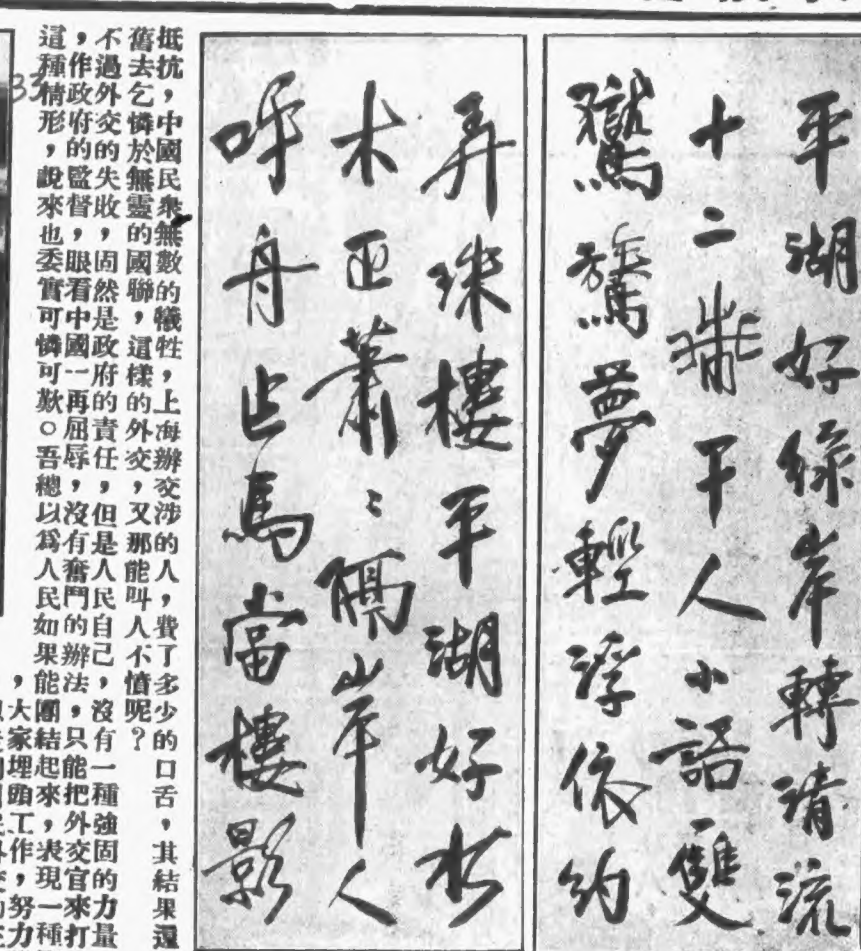 平湖好綠岸轉清流
十二干人小語雙
驚夢輕浮依約
弄珠樓平湖好水
木正蕭〻隔岸人
呼舟止馬當樓影
抵抗，中國民衆無數的犧牲，上海辦交涉的人，費了多少的口舌，其結果還
舊去乞憐於無靈的國聯，這樣的外交，又那能叫人不憤呢？
不過外交的失敗，固然是政府的責任，但是人民自己，沒有一種強固的力量
，作政府的監督，眼看中國一再屈辱，沒有奮鬥的辦法，只能把外交官來打
這種情形，說來也委實可憐可歎。吾總以爲人民如果能團結起來，表現一種
，大家埋頭工作，努力
33